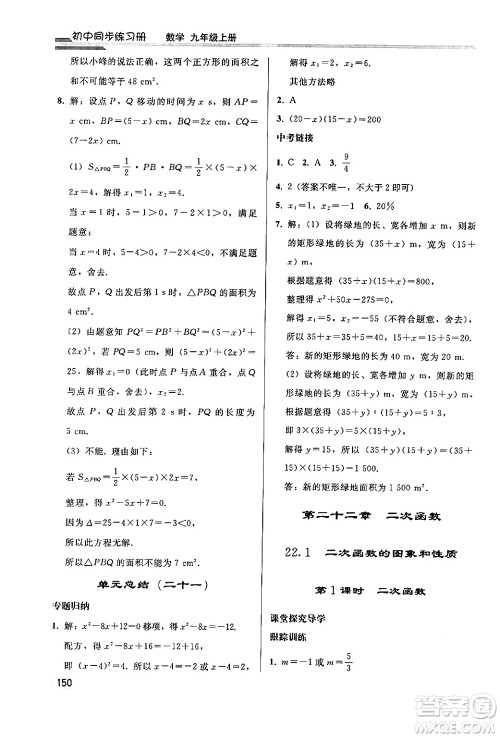 初中同步练习册 数学 九年级上册
所以小峰的说法正确,这两个正方形的面积
之和不可能等于 48 cm².
8. 解:设点 P,Q 移动的时间为 x s,则 AP=
x cm,BP=(5-x)cm,BQ=2x cm,CQ=
(7-2x)cm.
(1) S△PBQ=1/2·PB·BQ=1/2×(5-x)×
2x=4,整理得 x²-5x+4=0.
当 x=1 时,7-2x=7-2=5>0,满足
题意;
当 x=4 时,7-2x=7-8=-1<0,不满足
题意,舍去.
故点 P,Q 出发 1 s 后,△PBQ 的面积为
4 cm².
(2)由题意知 PQ²=PB²+BQ²=(5-x)²+
(2x)²=25,整理得 x²-2x=0.
解得 x₁=0(点 P 与点 A 重合,点 Q 与
点 B 重合,舍去),x₂=2.
故点 P,Q 出发 2 s 后,PQ 的长度为
5 cm.
(3)不能.理由如下:
若 S△PBQ=1/2×(5-x)×2x=7,
整理,得 x²-5x+7=0.
因为 Δ=25-4×1×7=-3<0,
所以此方程无解.
所以△PBQ 的面积不能等于 7 cm².
单元总结(二十一)
专题归纳
1. 解:x²-8x+12=0 移项,得 x²-8x=-12.
配方,得 x²-8x+16=-12+16,
即 (x-4)²=4,所以 x-4=±2,
150
所以 x₁=2,x₂=6.
其他方法略
2. A
3. (20-x)(15-x)=200
中考链接
1. C 2. A 3. 9/4
4. 2(答案不唯一,不大于 2 即可)
5. x₁=2,x₂=-1 6. 20%
7. 解:(1)设将绿地的长、宽各增加 x m,则
新的矩形绿地的长为(35+x)m,宽为(15+
x)m.
根据题意,得(35+x)(15+x)=800,
整理得 x²+50x-275=0,
解得 x₁=5,x₂=-55(不符合题意,舍去),
所以 35+x=35+5=40,15+x=15+5=20.
答:新的矩形绿地的长为 40 m,宽为 20 m.
(2)设将绿地的长、宽各增加 y m,则新的
矩形绿地的长为(35+y)m,宽为(15+y)m.
根据题意,得(35+y):(15+y)=5:3,
即 3×(35+y)=5×(15+y),
解得 y=15,
所以(35+y)(15+y)=(35+15)×(15+
15)=1 500.
答:新的矩形绿地面积为 1 500 m².
第二十二章 二次函数
22.1 二次函数的图象和性质
第 1 课时 二次函数
课堂探究导学
跟踪训练